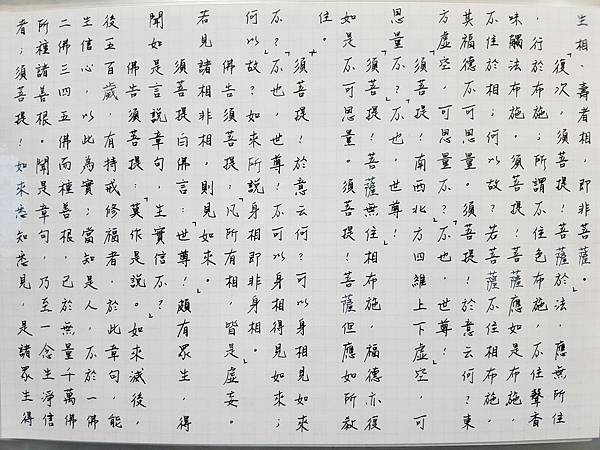 生相、壽者相，即非菩薩。」
「復次，須菩提！菩薩於法，應無所住
，行於布施；所謂不住色布施，不住聲香
味觸法布施。須菩提！菩薩應如是布施，
不住於相；何以故？若菩薩不住相布施，
其福德不可思量。須菩提！於意云何？東
方虛空，可思量不？」「不也，世尊！」
「須菩提！南西北方四維上下虛空，可
思量不？」「不也，世尊！」
「須菩提！菩薩無住相布施，福德亦復
如是不可思量。須菩提！菩薩但應如所教
住。」
「須菩提！於意云何？可以身相見如來
不？」「不也，世尊！不可以身相得見如來；
何以故？如來所說身相即非身相。」
佛告須菩提：「凡所有相，皆是虛妄。
若見諸相非相，則見如來。」
須菩提白佛言：「世尊！頗有眾生，得
聞如是言說章句，生實信不？」
佛告須菩提：「莫作是說。如來滅後，
後五百歲，有持戒修福者，於此章句，能
生信心，以此為實；當知是人，不於一佛
二佛三四五佛而種善根，已於無量千萬佛
所種諸善根。聞是章句，乃至一念生淨信
者；須菩提！如來悉知悉見，是諸眾生得